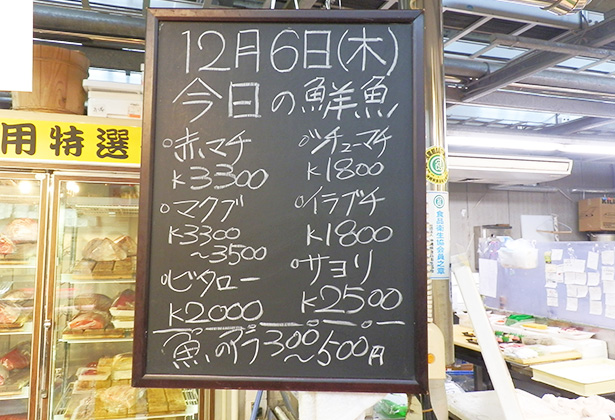 12月6日(木)
今日の鮮魚
○赤マチ
K3300
○マクブ
K3300
～3500
○ビタロー
K2000
○シチューマチ
K1800
○イラブチ
K1800
○サヨリ
K2500
魚の子ラ300～500円
用特選
食品衛生協会員之章